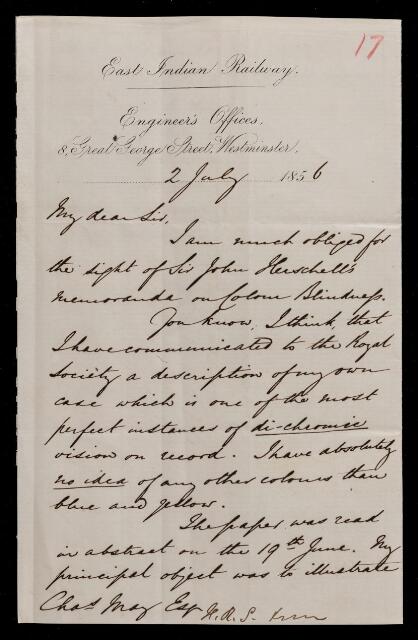 17
East Indian Railway.
Engineer's Offices,
8, Great George Street, Westminster,
2 July 1856
My dear Sir,
I am much obliged for
the sight of Sir John Herschell's
memoranda on Colour Blindness.
You know, I think, that
I have communicated to the Royal
Society a description of my own
case which is one of the most
perfect instances of di-chromic
vision on record. I have absolutely
no idea of any other colours than
blue and yellow.
The paper was read
in abstract on the 19th June. My
principal object was to illustrate
Chas May Esq F.R.S.